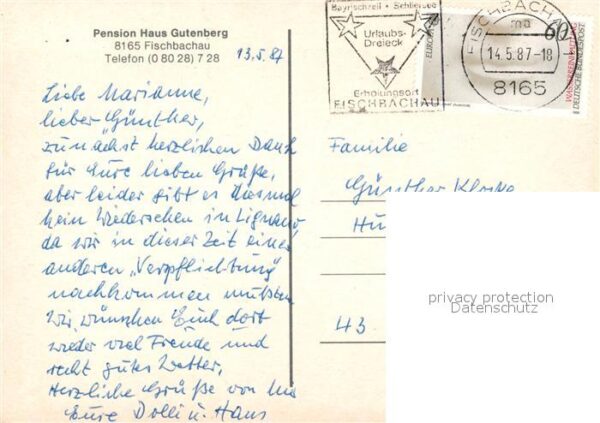 Pension Haus Gutenberg
8165 Fischbachau
Telefon (0 80 28) 7 28
13.5.87
Liebe Marianne,
lieber Günther,
zunächst herzlichen Dank
für Eure lieben Grüße,
aber leider gibt es diesmal
kein Wiedersehen in Lignano,
da wir in dieser Zeit einer
anderen "Verpflichtung"
nachkommen mußten.
Wir wünschen Euch dort
wieder viel Freude und
recht gutes Wetter.
Herzliche Grüße von
Eure Dolli u. Hans
Bayrischzell · Schliersee
Urlaubs-
Dreieck
Erholungsort
FISCHBACHAU
EUROPA
60
WASSERREINHALTUNG
DEUTSCHE BUNDESPOST
FISCHBACHAU
ma
14.5.87-18
8165
Familie
Günther
43
privacy protection
Datenschutz